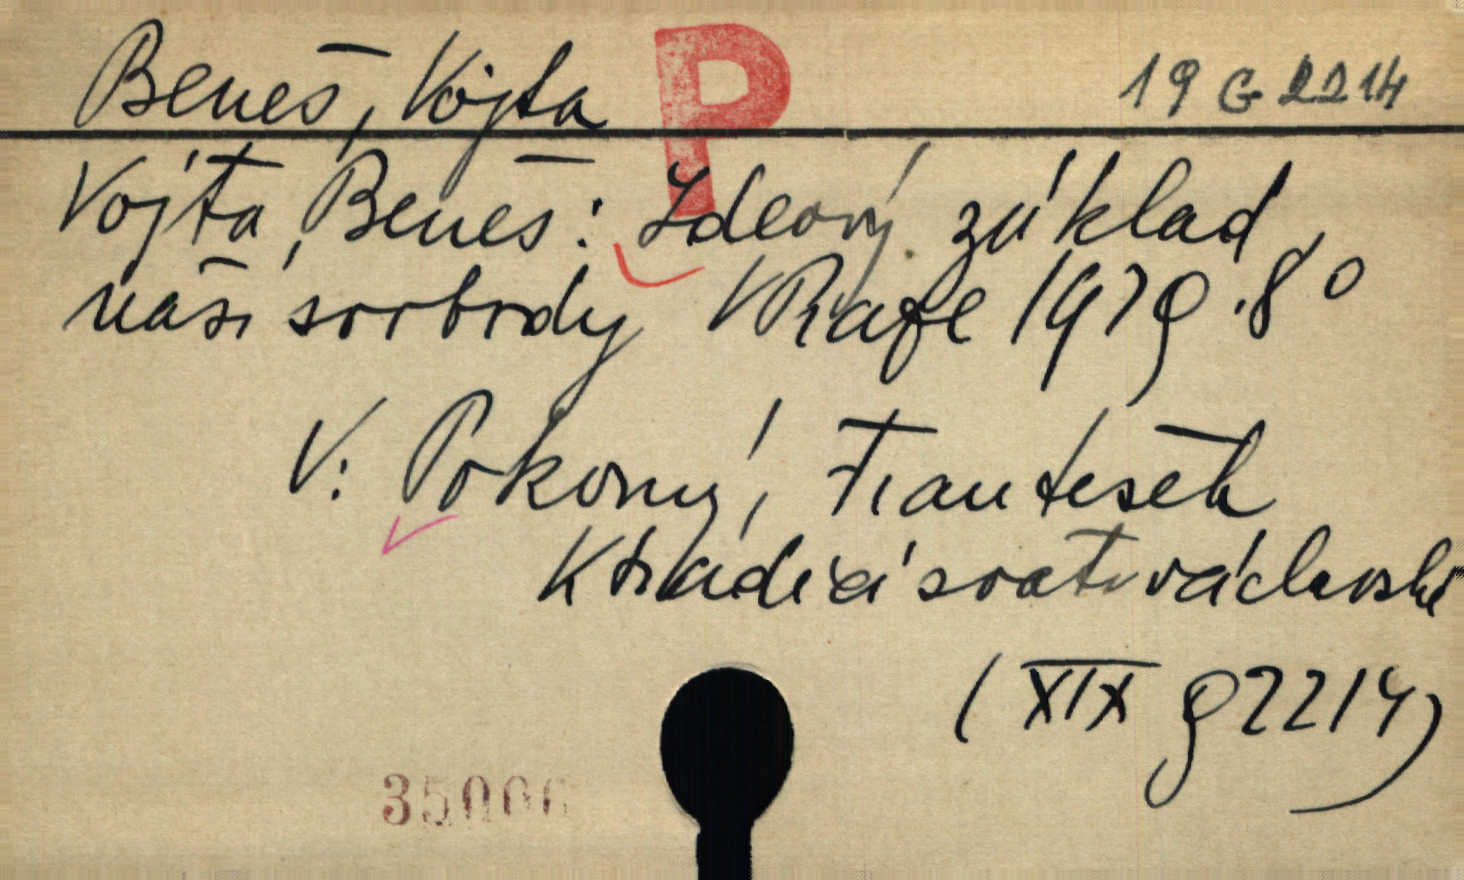 Beneš, Vojta
P
19 G 2214
Vojta Beneš: Ideový základ
naší svobody V Praze 1929. 8°
V: Pokorný, František
K tradici svatováclavské
(XIX g 2214)
35006